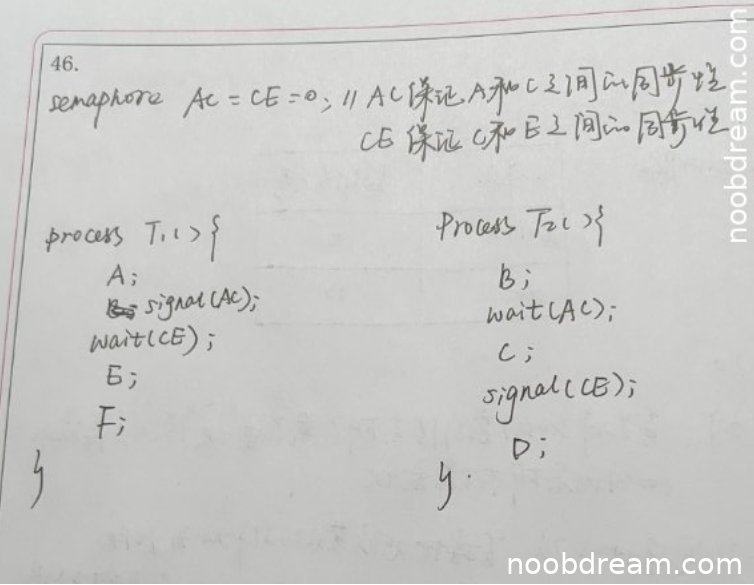 46.
semaphore AC = CE = 0; // AC保证A和C之间的同步性
CE保证C和E之间的同步性
process T1() {
A;
signal(AC);
wait(CE);
E;
F;
}
Process T2() {
B;
wait(AC);
C;
signal(CE);
D;
}.
noobdream.com
noobdream.com